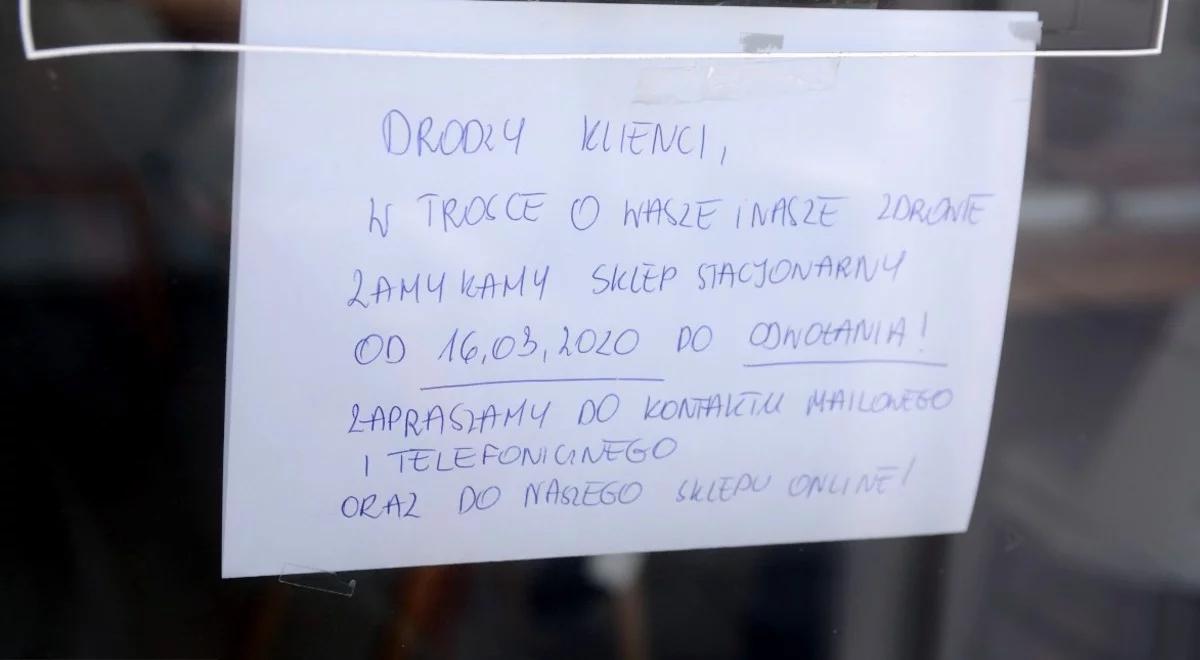 DRODZY KLIENCI,
W TROSCE O WASZE I NASZE ZDROWIE
ZAMYKAMY SKLEP STACJONARNY
OD 16,03,2020 DO ODWOŁANIA!
ZAPRASZAMY DO KONTAKTU MAILOWEGO
I TELEFONICZNEGO
ORAZ DO NASZEGO SKLEPU ONLINE!